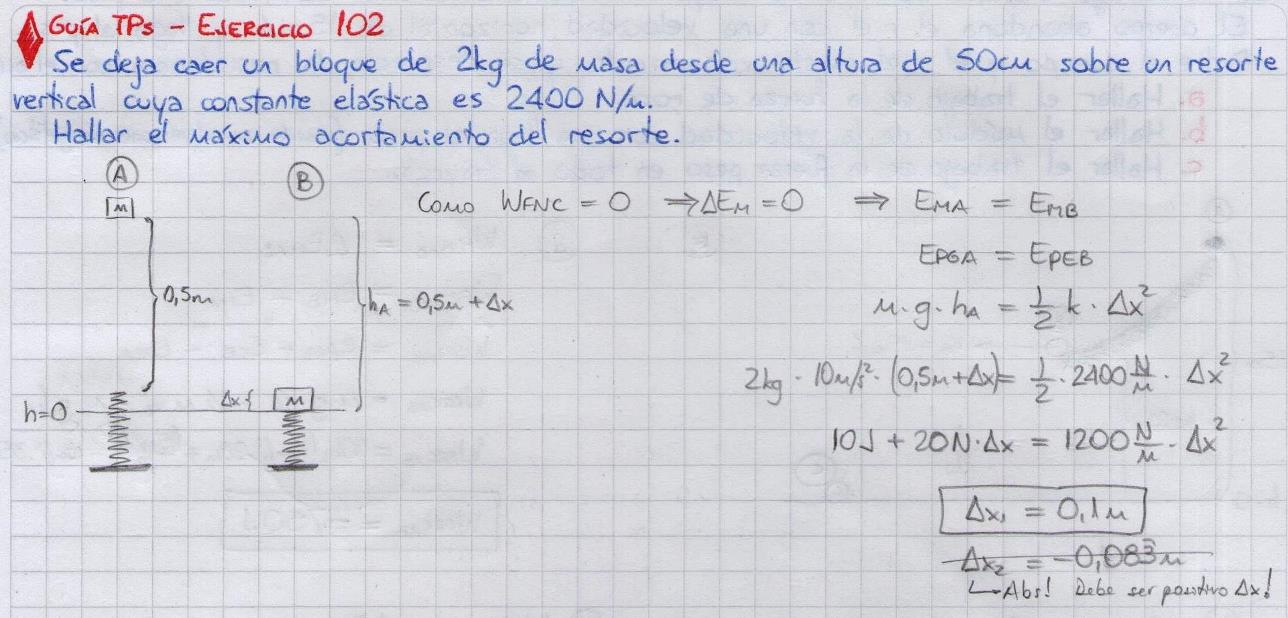 GUÍA TPs - EJERCICIO 102
Se deja caer un bloque de 2kg de masa desde una altura de 50cm sobre un resorte
vertical cuya constante elástica es 2400 N/m.
Hallar el máximo acortamiento del resorte.
A
B
M
0,5m
h=0
hA = 0,5m + Δx
Δx
M
Como WFNC = 0 ⇒ ΔEM = 0 ⇒ EMA = EMB
EPGA = EPEB
m·g·hA = 1/2 k · Δx²
2kg · 10m/s² · (0,5m+Δx) = 1/2 · 2400 N/m · Δx²
10J + 20N·Δx = 1200 N/m · Δx²
Δx₁ = 0,1m
Δx₂ = -0,083m
Abs! Debe ser positivo Δx!